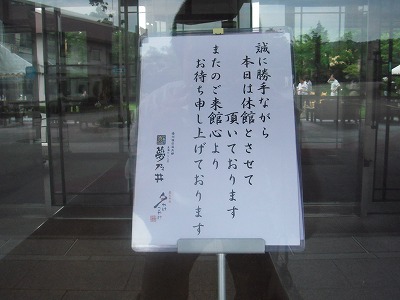 誠に勝手ながら
本日は休館とさせて
頂いております
またのご来館心より
お待ち申し上げております
夢乃井